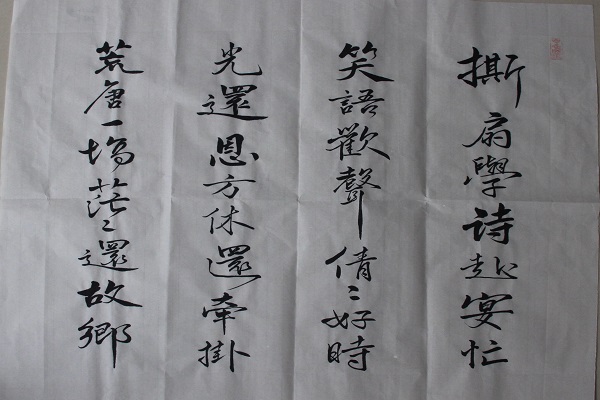 撕扇學诗赴宴忙
笑語歡聲倩〻好時
光還恩方休還牽掛
荒唐一場茫〻還故鄉